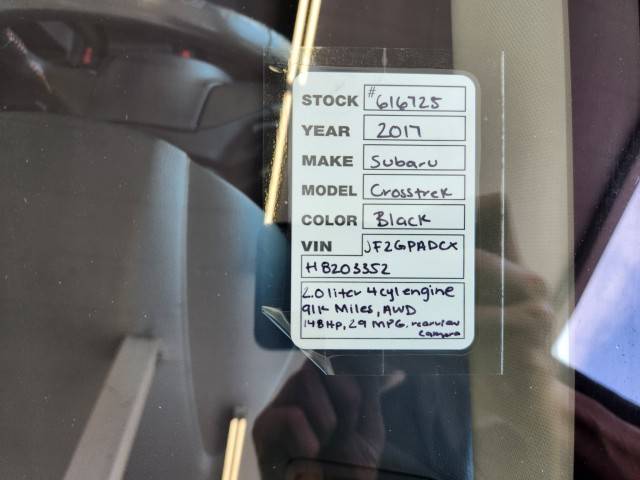 STOCK #616725
YEAR 2017
MAKE Subaru
MODEL Crosstrek
COLOR Black
VIN JF2GPADCX
H8203352
2.0 liter 4cyl engine
91k Miles, AWD
148Hp, 29 MPG, rearview
Camera